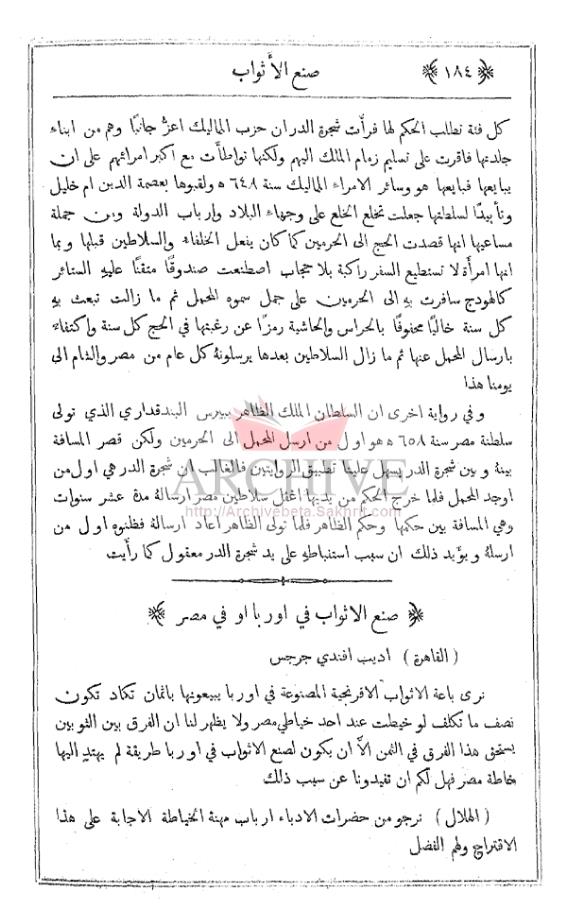 ﴿ ١٨٤ ﴾ صنع الأثواب
كل فئة تطلب الحكم لها فرأت شجرة الدر ان حزب المماليك اعزُّ جانبًا وهم من ابناء
جلدتها فاقرت على تسليم زمام الملك اليهم ولكنها تواطأت مع اكبر امرائهم على ان
يبايعها فبايعها هو وسائر الامراء المماليك سنة ٦٤٨ ه ولقبوها بعصمة الدين ام خليل
وتأييدًا لسلطتها جعلت تخلع الخلع على وجهاء البلاد وارباب الدولة ومن جملة
مساعيها انها قصدت الحج الى الحرمين كما كان يفعل الخلفاء والسلاطين قبلها وبما
انها امرأة لا تستطيع السفر راكبة بلا حجاب اصطنعت صندوقًا متقنًا عليهِ الستائر
كالهودج سافرت بهِ الى الحرمين على جمل سموه المحمل ثم ما زالت تبعث بهِ
كل سنة خاليًا محفوفًا بالحراس والحاشية رمزًا عن رغبتها في الحج كل سنة واكتفاءً
بارسال المحمل عنها ثم ما زال السلاطين بعدها يرسلونهُ كل عام من مصر والشام الى
يومنا هذا
وفي رواية اخرى ان السلطان الملك الظاهر بيبرس البندقداري الذي تولى
سلطنة مصر سنة ٦٥٨ ه هو اول من ارسل المحمل الى الحرمين ولكن قصر المسافة
بينهُ وبين شجرة الدر يسهل علينا تطبيق الروايتين فالغالب ان شجرة الدر هي اول من
اوجد المحمل فلما خرج الحكم من يديها اغفل سلاطين مصر ارسالهُ مدة عشر سنوات
وهي المسافة بين حكمها وحكم الظاهر فلما تولى الظاهر اعاد ارسالهُ فظنوه اول من
ارسلهُ ويؤيد ذلك ان سبب استنباطهِ على يد شجرة الدر معقول كما رأيت
﴿ صنع الاثواب في اوربا او في مصر ﴾
( القاهرة ) اديب افندي جرجس
نرى باعة الاثواب الافرنجية المصنوعة في اوربا يبيعونها باثمان تكاد تكون
نصف ما تكلف لو خيطت عند احد خياطي مصر ولا يظهر لنا ان الفرق بين الثوبين
يستحق هذا الفرق في الثمن الاَّ ان يكون لصنع الاثواب في اوربا طريقة لم يهتدِ اليها
خاطة مصر فهل لكم ان تفيدونا عن سبب ذلك
( الهلال ) نرجو من حضرات الادباء ارباب مهنة الخياطة الاجابة على هذا
الاقتراح ولهم الفضل
ARCHIVE
http://Archivebeta.Sakhrit.com